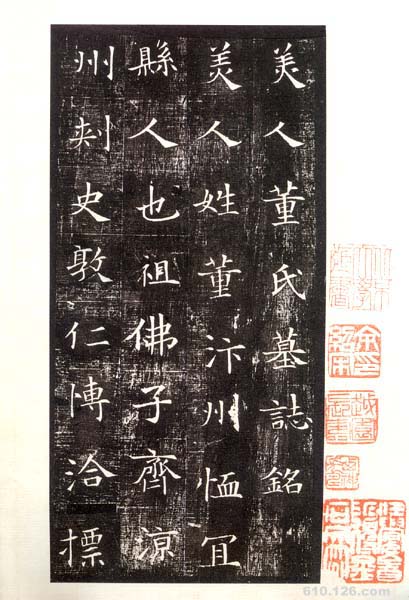 美人董氏墓誌銘
美人姓董汴州恤冝
縣人也祖佛子齊涼
州刾史敦仁愽洽標
610.126.com